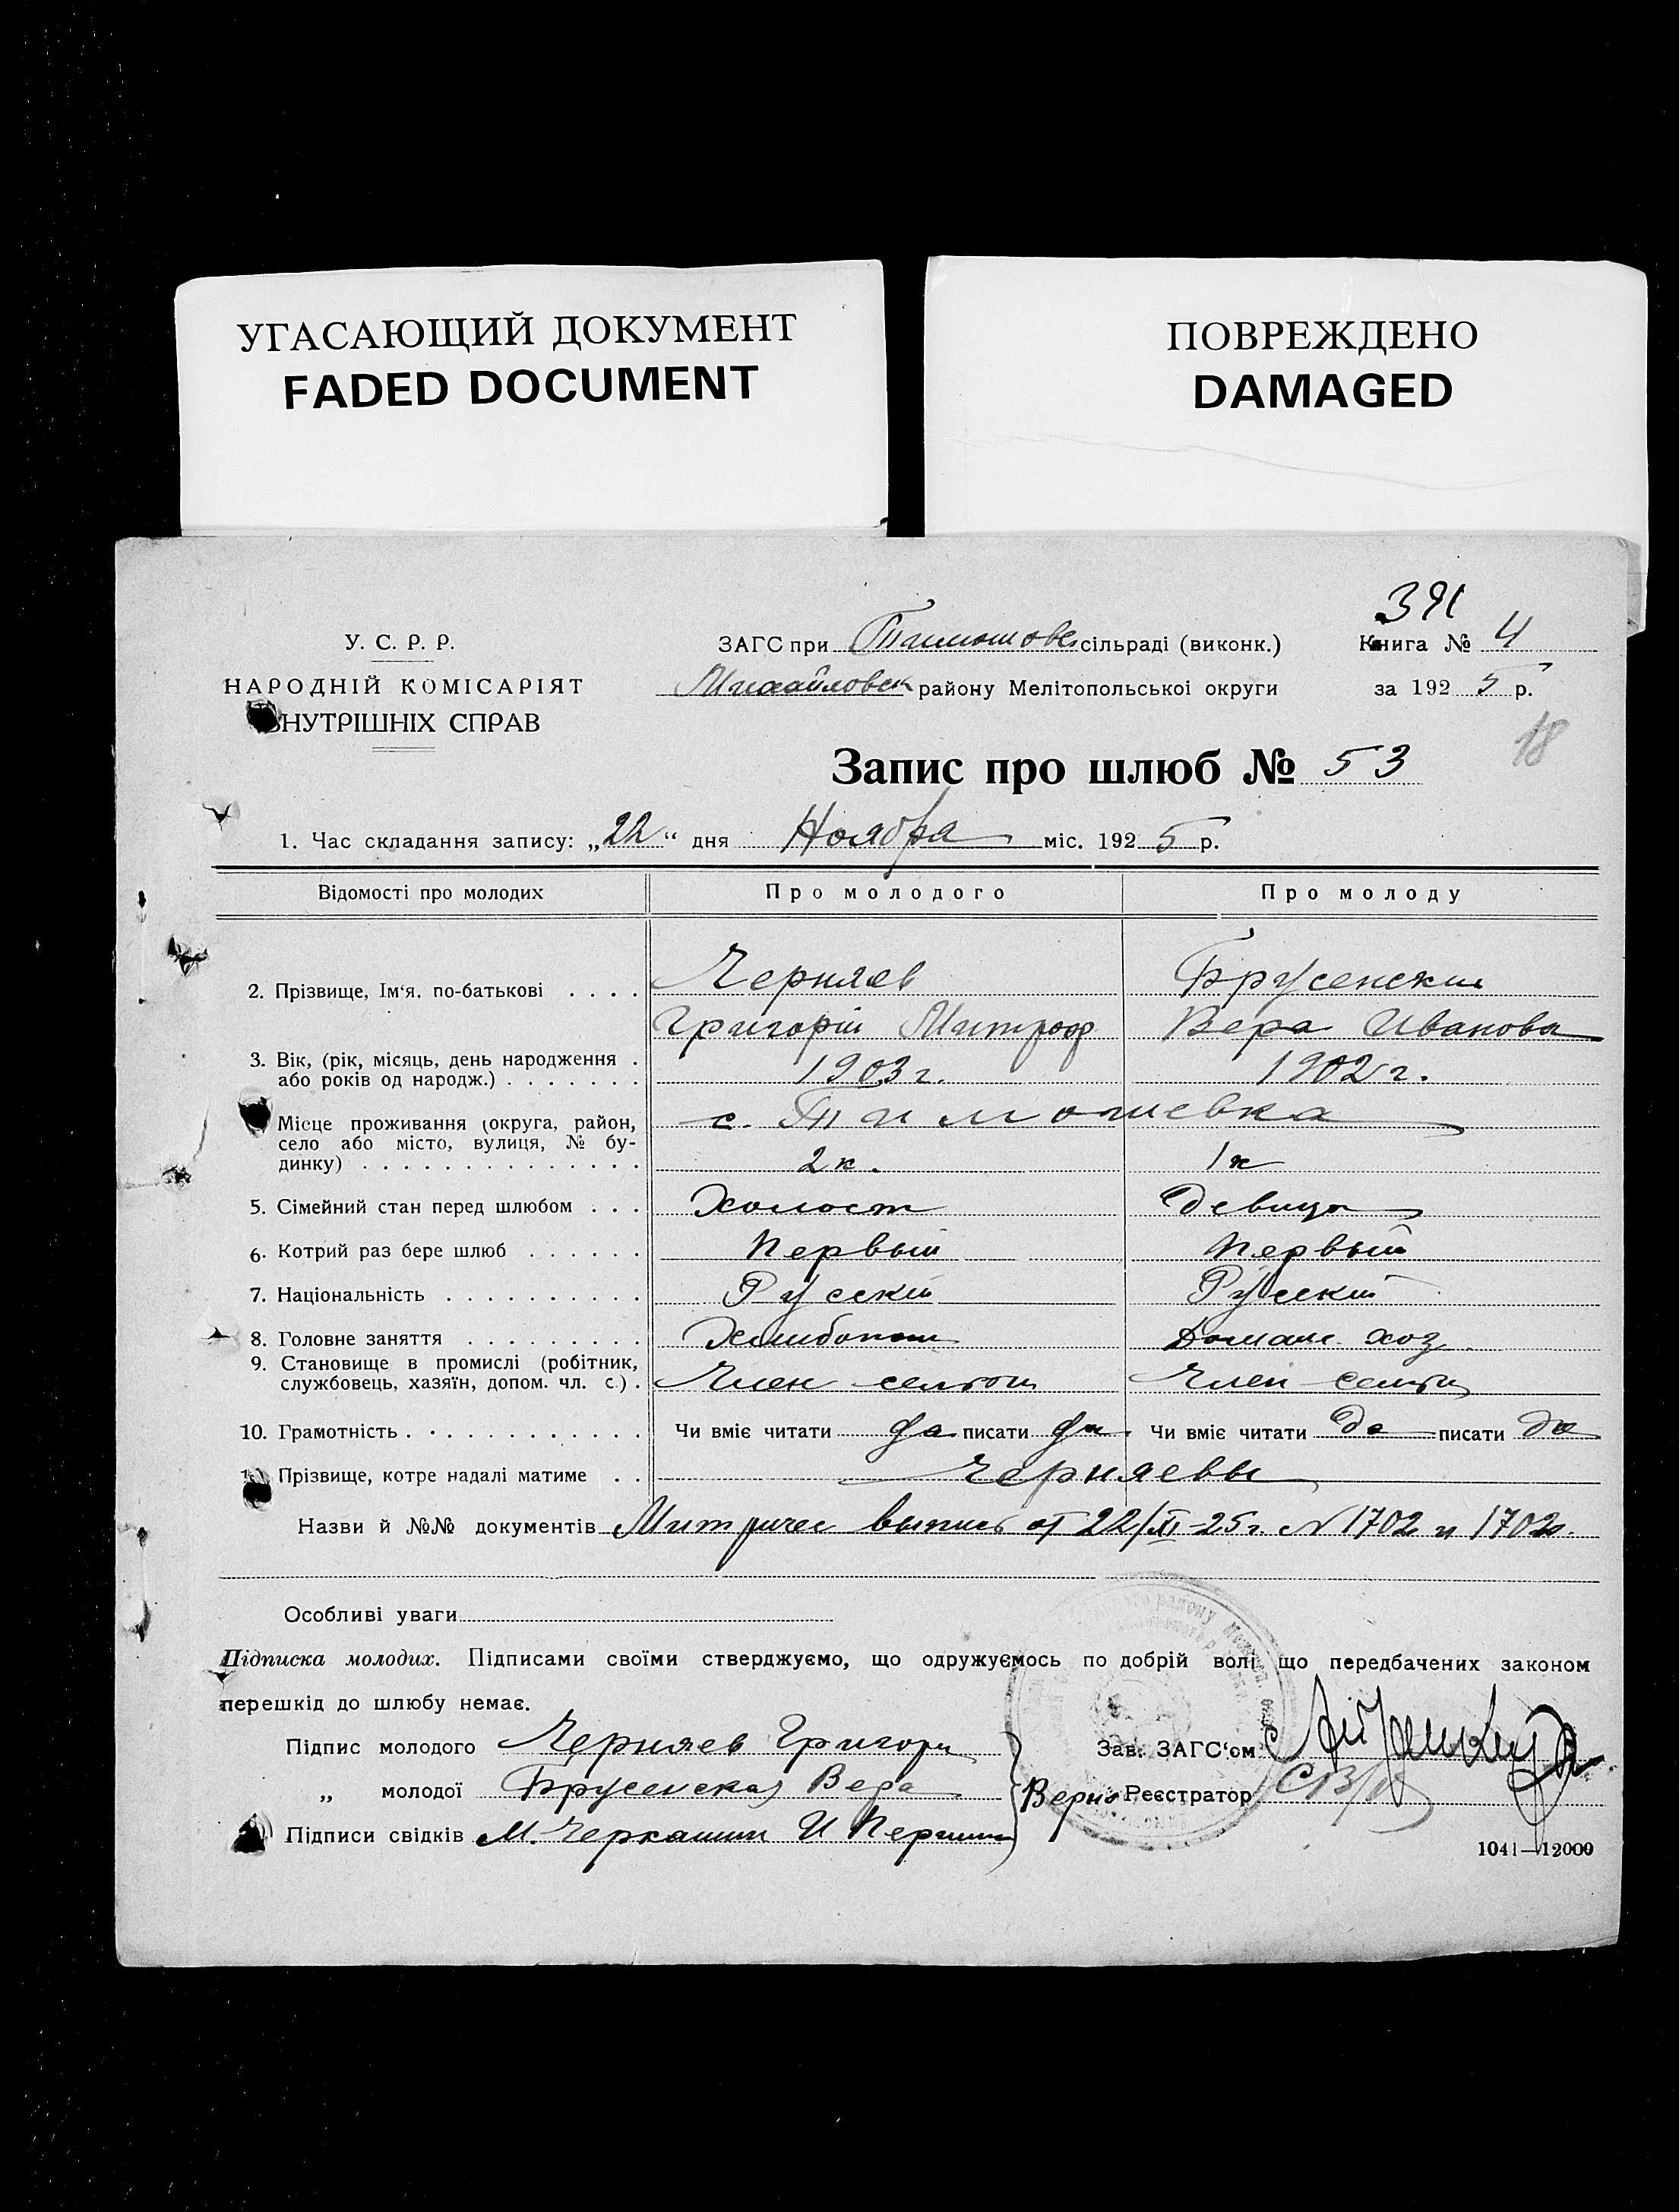 УГАСАЮЩИЙ ДОКУМЕНТ
FADED DOCUMENT
ПОВРЕЖДЕНО
DAMAGED
391
У. С. Р. Р.
НАРОДНІЙ КОМІСАРІЯТ
ВНУТРІШНІХ СПРАВ
ЗАГС при Тимошовс сільраді (виконк.)
Михайловск району Мелітопольської округи
Книга № 4
за 1925 р.
18
Запис про шлюб № 53
1. Час складання запису: „22“ дня Ноября міс. 1925 р.
Відомості про молодих Про молодого Про молоду
2. Прізвище, Ім‘я, по-батькові . . . . Черняев Брусенский
Григорій Митроф Вера Иванова
3. Вік, (рік, місяць, день народження .
або років од народж.) . . . . . . . 1903 г. 1902 г.
Місце проживання (округа, район, с. Тимошевка
село або місто, вулиця, № бу-
динку) . . . . . . . . . . . . . . 2 к. 1 к
5. Сімейний стан перед шлюбом . . . Холост Девица
6. Котрий раз бере шлюб . . . . . . Первый Первый
7. Національність . . . . . . . . . . Русский Русский
8. Головне заняття . . . . . . . . . Домаш. хоз.
9. Становище в промислі (робітник,
службовець, хазяїн, допом. чл. с.) . Член семьи Член семьи
10. Грамотність . . . . . . . . . . . . Чи вміє читати да писати да Чи вміє читати да писати да
Прізвище, котре надалі матиме . . Черняевы
Назви й №№ документів Митричес выпись от 22/XI-25 г. № 1702 и 1702.
Особливі уваги
Підписка молодих. Підписами своїми стверджуємо, що одружуємось по добрій волі що передбачених законом
перешкід до шлюбу немає.
Підпис молодого Черняев Григори
„ молодої Брусенская Вера
Підписи свідків М. Черкашин И
Зав. ЗАГС‘ом
Верно Реєстратор
1041—12000